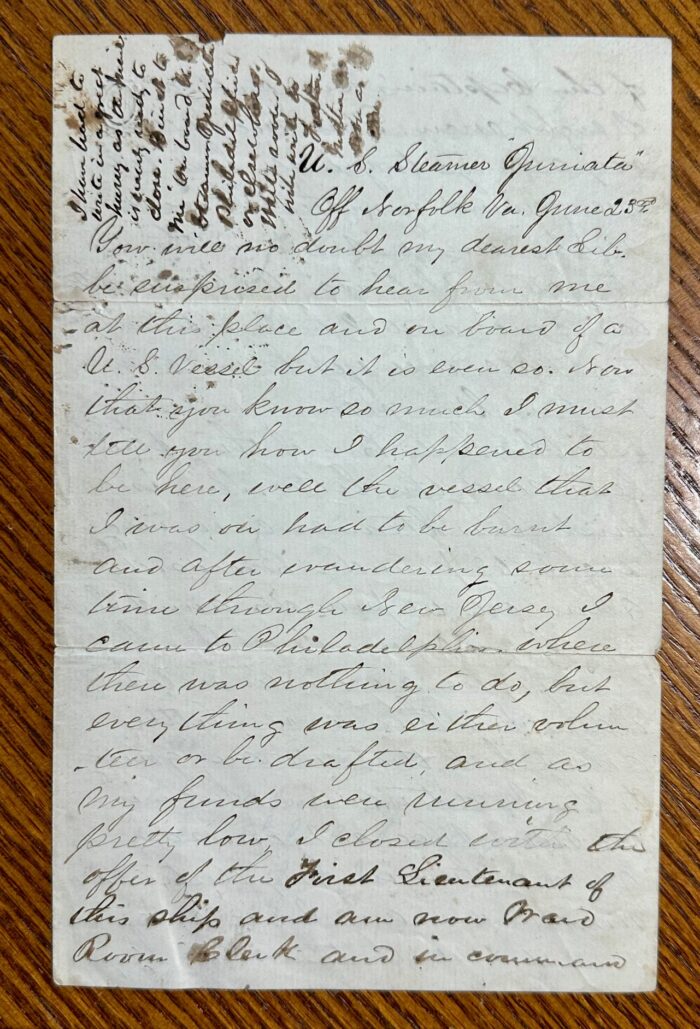 U. S. Steamer "Juniata"
Off Norfolk Va. June 23rd
You will no doubt my dearest Lib.
be surprised to hear from me
at this place and on board of a
U. S. Vessel but it is even so. Now
that you know so much I must
tell you how I happened to
be here, well the vessel that
I was on had to be burnt
and after wandering some
time through New Jersey I
came to Philadelphia where
there was nothing to do, but
everything was either volun
-teer or be drafted, and as
my funds were running
pretty low, I closed with the
offer of the First Lieutenant of
this ship and am now Ward
Room Clerk and in command
I have had to
write in a great
hurry, as the mail
is nearly ready to
close. Direct to
me on board the
Steamer Juniata
Philadelphia
or elsewhere.
Write soon